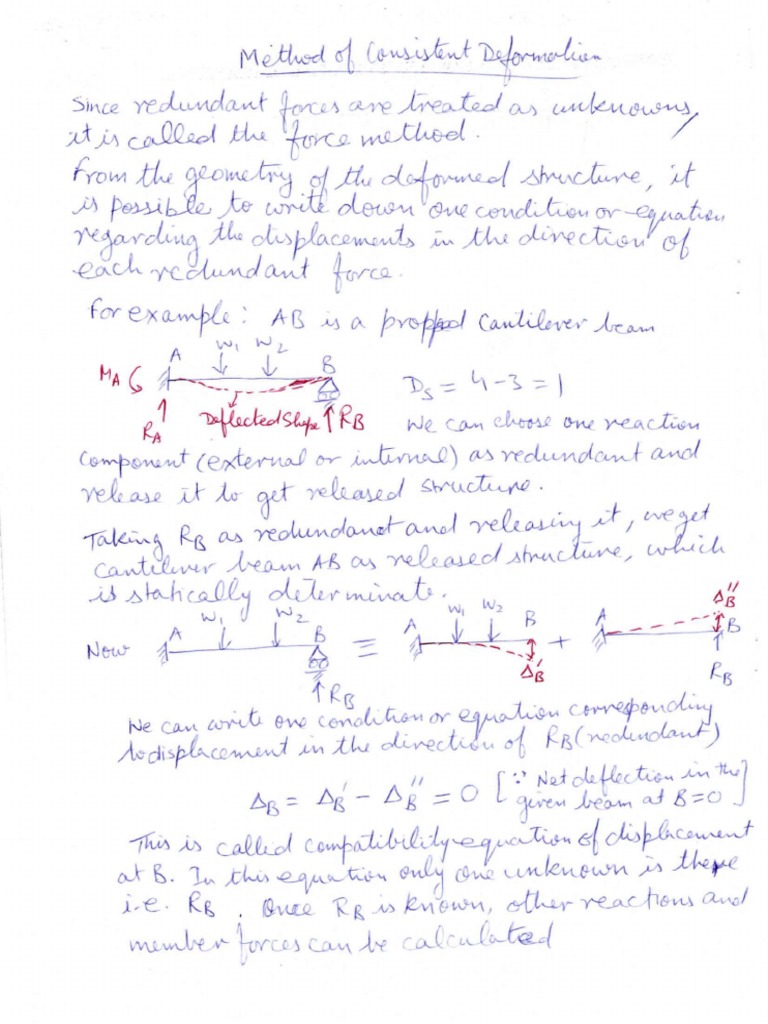 Method of Consistent Deformation
Since redundant forces are treated as unknowns,
it is called the force method.
From the geometry of the deformed structure, it
is possible to write down one condition or equation
regarding the displacements in the direction of
each redundant force.
For example: AB is a propped cantilever beam
A W₁ W₂ B
M_A
D_S = 4-3 = 1
R_A Deflected Shape R_B We can choose one reaction
component (external or internal) as redundant and
release it to get released structure.
Taking R_B as redundant and releasing it, we get
cantilever beam AB as released structure, which
is statically determinate.
Now A W₁ W₂ B R_B ≡ A W₁ W₂ B Δ_B' + A B Δ_B'' R_B
We can write one condition or equation corresponding
to displacement in the direction of R_B (redundant)
Δ_B = Δ_B' - Δ_B'' = 0 [∵ Net deflection in the
given beam at B=0]
This is called compatibility equation of displacement
at B. In this equation only one unknown is there
i.e. R_B. Once R_B is known, other reactions and
member forces can be calculated